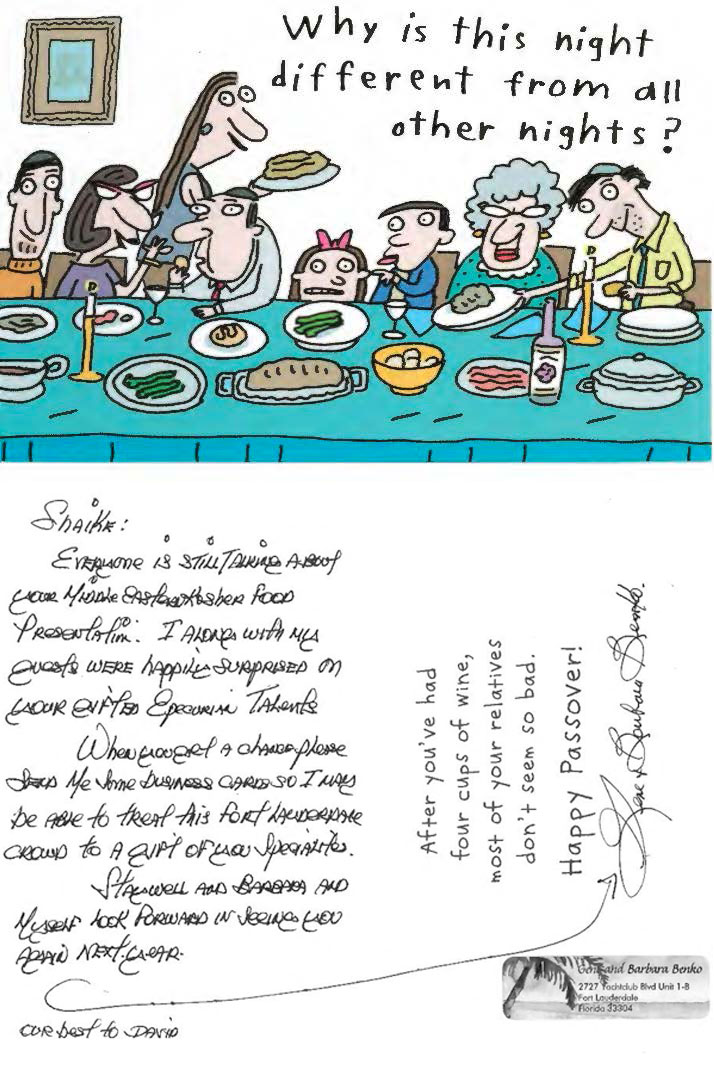 Why is this night
different from all
other nights?
Shaike:
Everyone is still talking about
your Middle Eastern Kosher Food
Presentation. I along with my
guests were happily surprised on
your gifted Epecurian Talents
When you get a chance please
send me some business cards so I may
be able to treat this Fort Lauderdale
crowd to a gift of your Specialties.
Stay well and Barbara and
myself look forward in seeing you
again next year.
our best to David
After you've had
four cups of wine,
most of your relatives
don't seem so bad.
Happy Passover!
Gene & Barbara Benko.
Gene and Barbara Benko
2727 Yachtclub Blvd Unit 1-B
Fort Lauderdale
Florida 33304